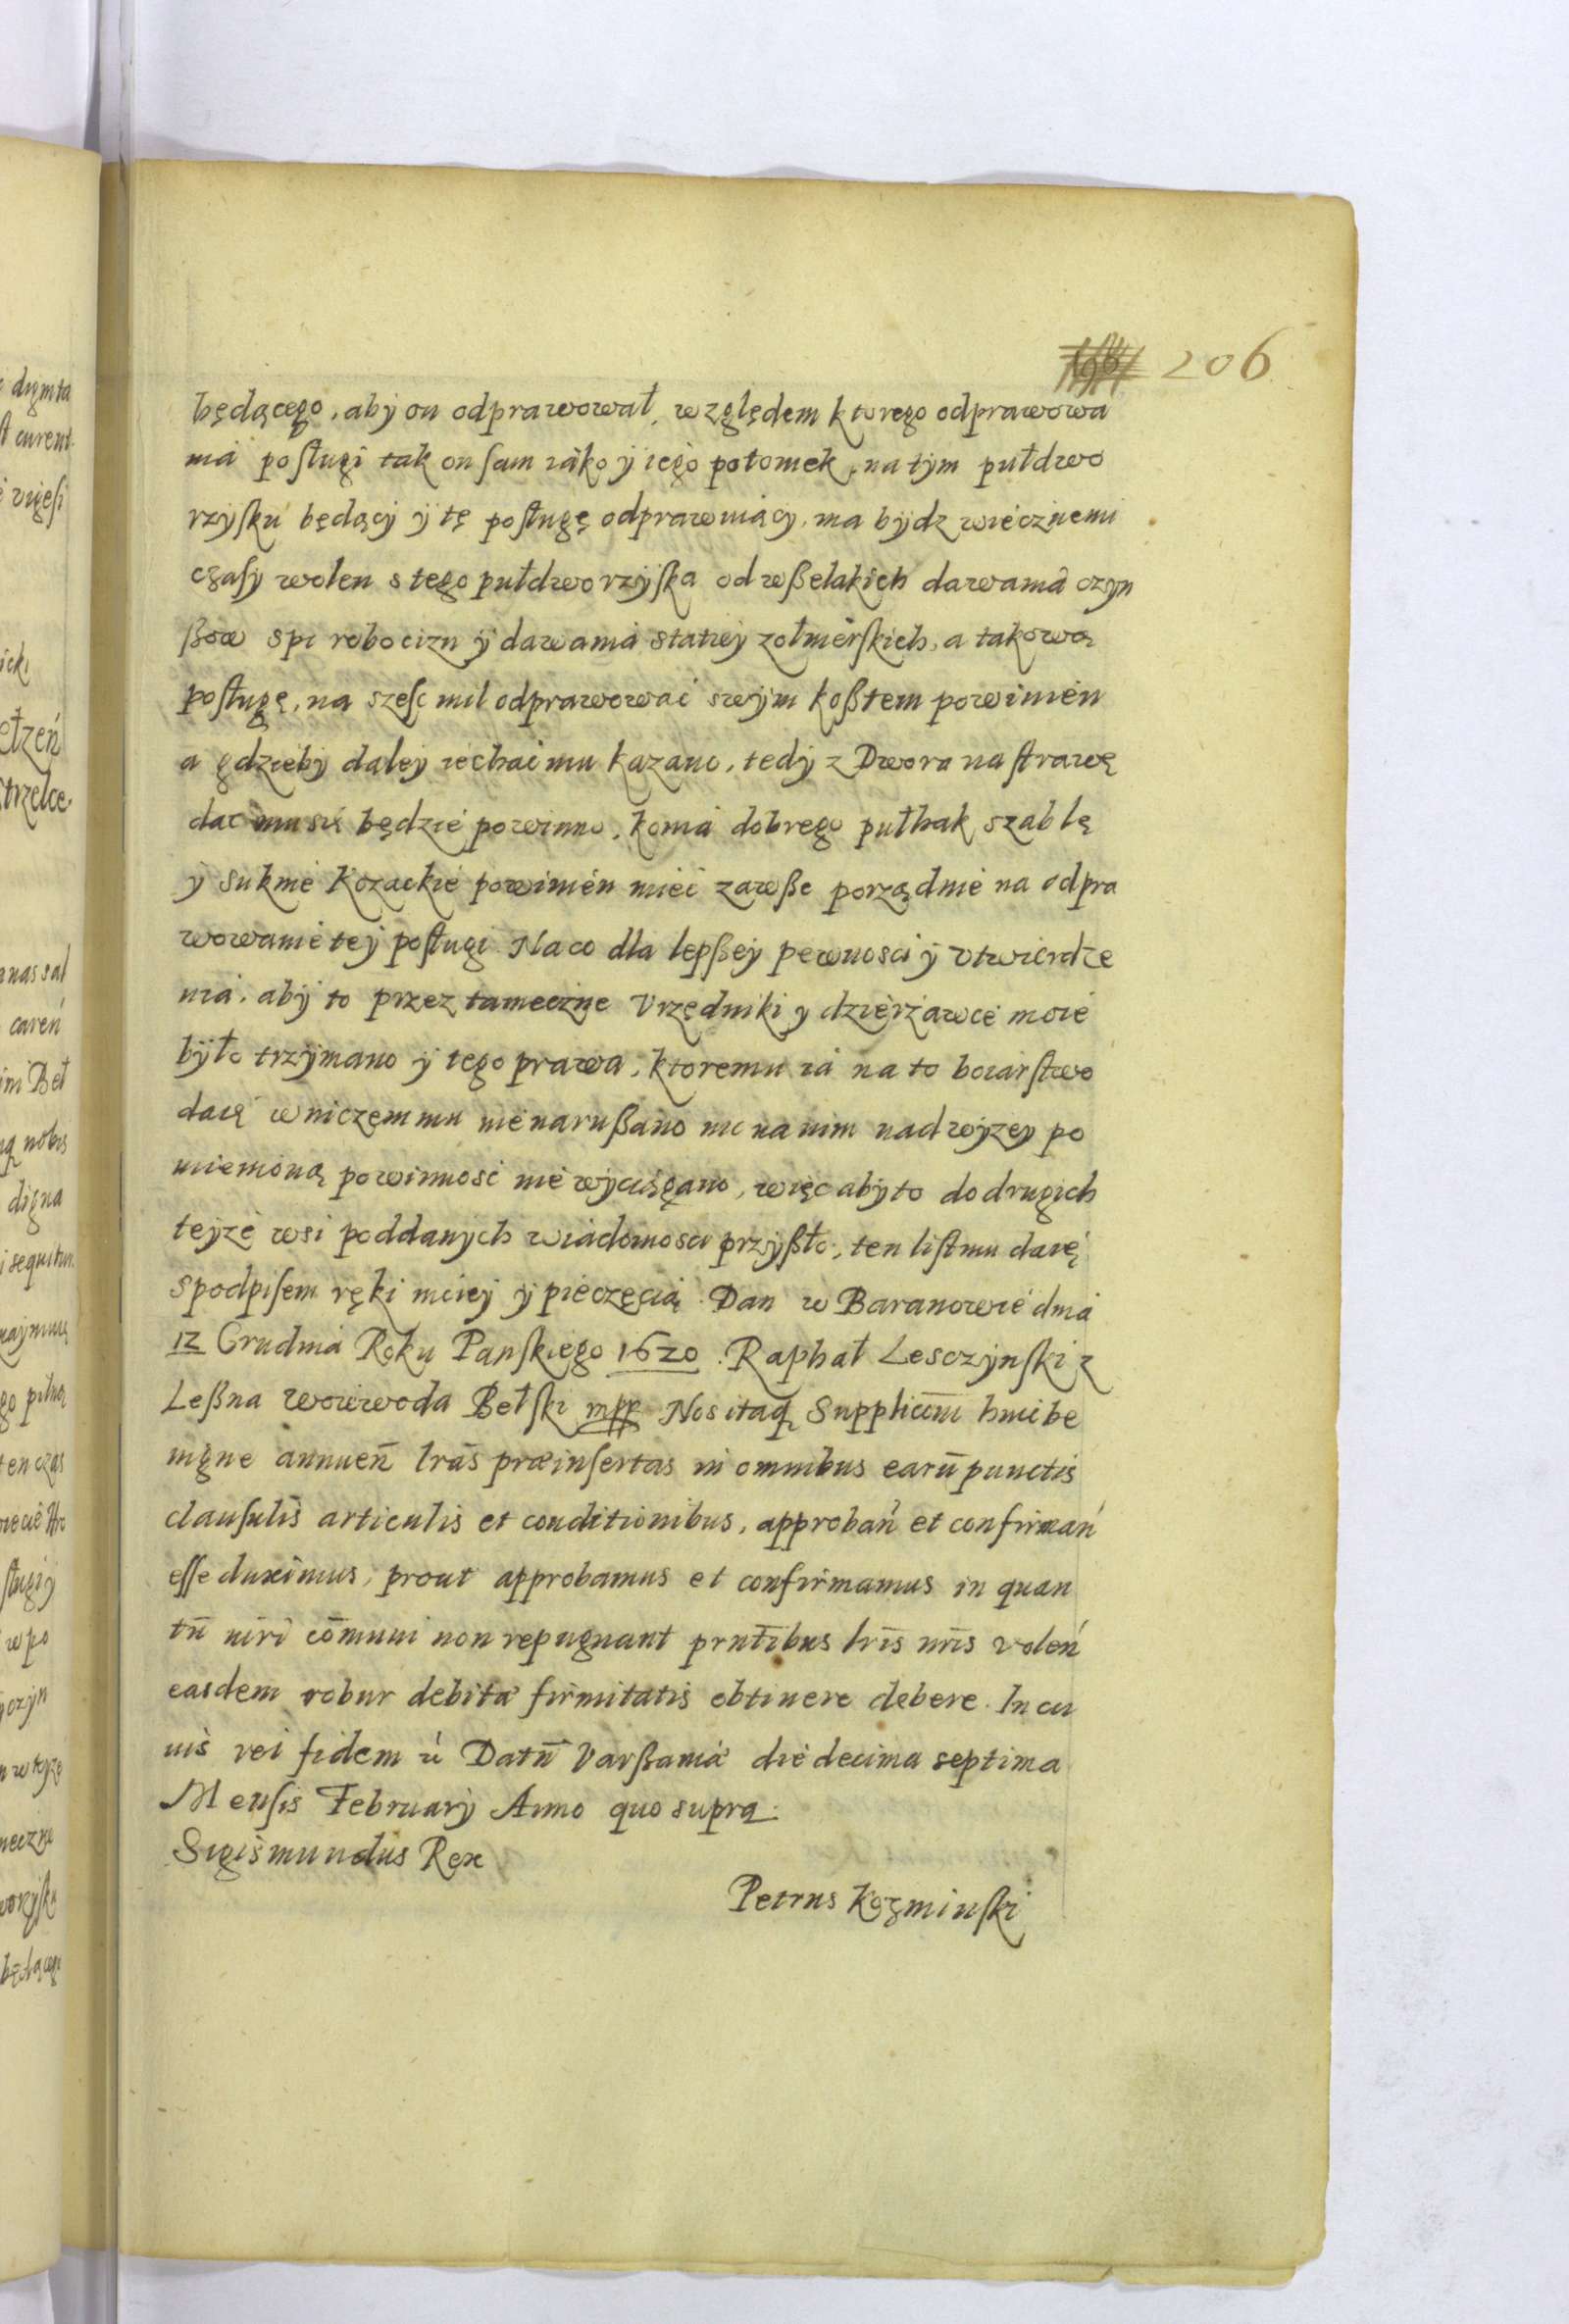 206
będącego, aby on odprawował, względem ktorego odprawowa
nia posługi tak on sam iako y iego potomek, na tym pułdwo
rzysku będący y tę posługę odprawuiący, ma bydz wiecznemi
czasy wolen s tego pułdworzyska od wßelakich dawania czyn
ßow spi robocizn y dawania statiey zołnierskich, a takową
posługę, na szesc mil odprawować swym koßtem powinien
a gdzieby daley iechać mu kazano, tedy z Dwora na strawę
dać mu się będzie powinno, konia dobrego pułhak szablę
y suknie Kozackie powinien mieć zawße porządnie na odpra
wowanie tey posługi. Na co dla lepßey pewnosci y vtwierdze
nia, aby to przez tameczne Vrzędniki y dzierżawce moie
było trzymano y tego prawa, ktoremu ia na to boiarstwo
daię w niczem mu nie narußano nic na nim nad wyzey po
mienioną powinność nie wyciągano, więc aby to do drugich
teyze wsi poddanych wiadomosci przyßło, ten list mu daię
s podpisem ręki moiey y pieczęcią. Dan w Baranowie dnia
12 Grudnia Roku Panskiego 1620. Raphał Lesczynski z
Leßna woiewoda Bełski mpp Nos itaq Supplicōni hmoi be
nigne annueñ lrãs præinsertas in omnibus earũ punctis
clausulis articulis et conditionibus, approbań et confirmań
esse duximus, prout approbamus et confirmamus in quan
tũ iuri cõmuni non repugnant prñtibus lrīs nrīs voleń
easdem robur debitæ firmitatis obtinere debere. In cu
ius rei fidem ů Datũ Varßaviæ die decima septima
Mensis February Anno quo supra.
Sigismundus Rex
Petrus Kozminski